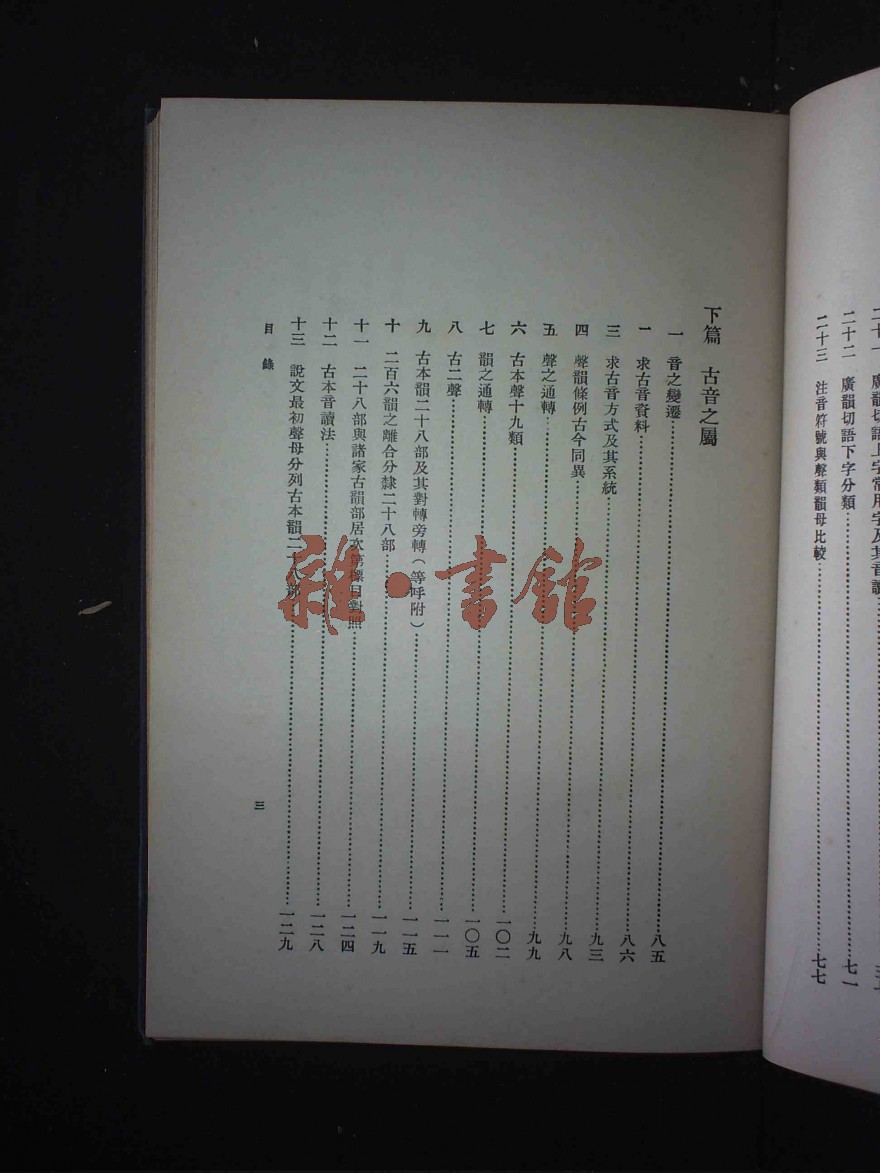 二十二　廣韻切語下字分類……七一
二十三　注音符號與聲類韻母比較……七七
下篇　古音之屬
一　音之變遷……八五
二　求古音資料……八六
三　求古音方式及其系統……九三
四　聲韻條例古今同異……九八
五　聲之通轉……九九
六　古本聲十九類……一〇二
七　韻之通轉……一〇五
八　古二聲……一一一
九　古本韻二十八部及其對轉旁轉（等呼附）……一一五
十　二百六韻之離合分隸二十八部……一一九
十一　二十八部與諸家古韻部居次第標目對照……一二四
十二　古本音讀法……一二八
十三　說文最初聲母分列古本韻二十八部……一二九
目錄
三
雜·書館